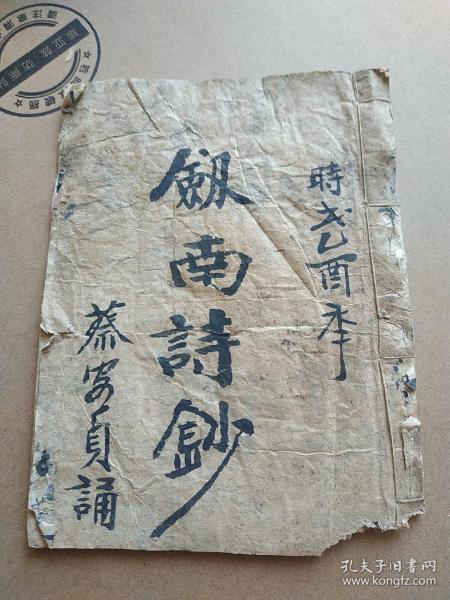 時歲乙酉年
劔南詩鈔
蔡貞誦
孔夫子旧书网
www.kongfz.com